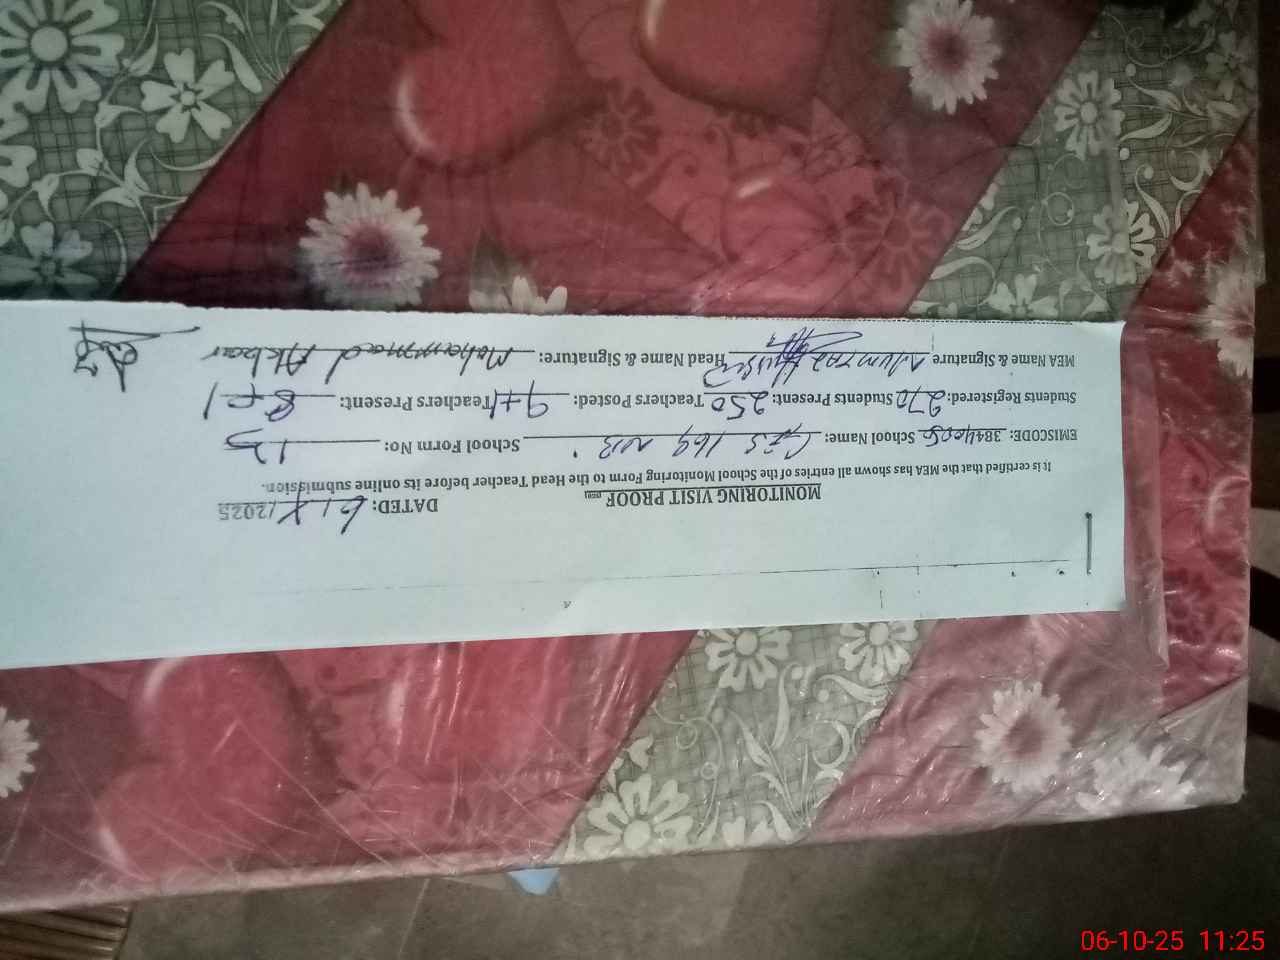 MONITORING VISIT PROOF DATED: 6/X/2025
It is certified that the MEA has shown all entries of the School Monitoring Form to the Head Teacher before its online submission.
EMISCODE: 38440056 School Name: GES 169 NB School Form No: 13
Students Registered: 270 Students Present: 250 Teachers Posted: 9+1 Teachers Present: 8+1
MEA Name & Signature Mumtaz Hussain Head Name & Signature: Mohammad Akbar
06-10-25 11:25